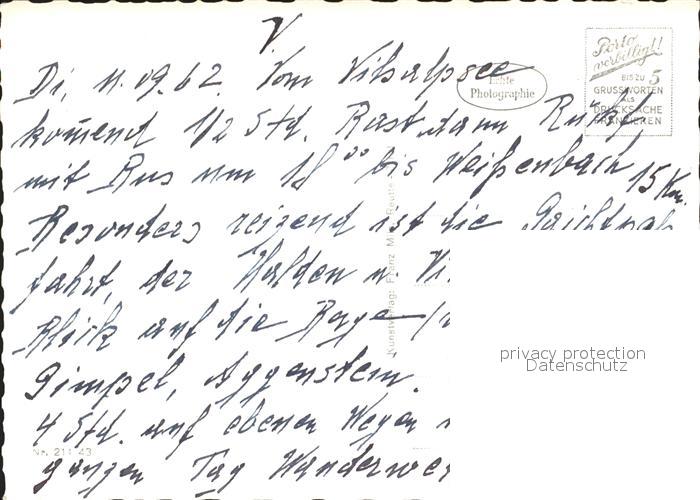 V.
Di, 11.09.62. Vom Vilsalpsee
komend 1/2 Std. Rast dann Rückf.
mit Bus um 18⁰⁰ bis Weißenbach 15 Km.
Besonders reizend ist die Gaichtpaß
fahrt, der Halden u Vi
Blick auf die Berge
Gimpel, Aggenstein.
4 Std. auf ebenen Wegen
ganzen Tag Wanderwe
Echte
Photographie
Porto
verbilligt!
BIS ZU 5
GRUSSWORTEN
ALS
DRUCKSACHE
FRANKIEREN
Kunstverlag: Franz M Reutte
Nr. 211 43
privacy protection
Datenschutz